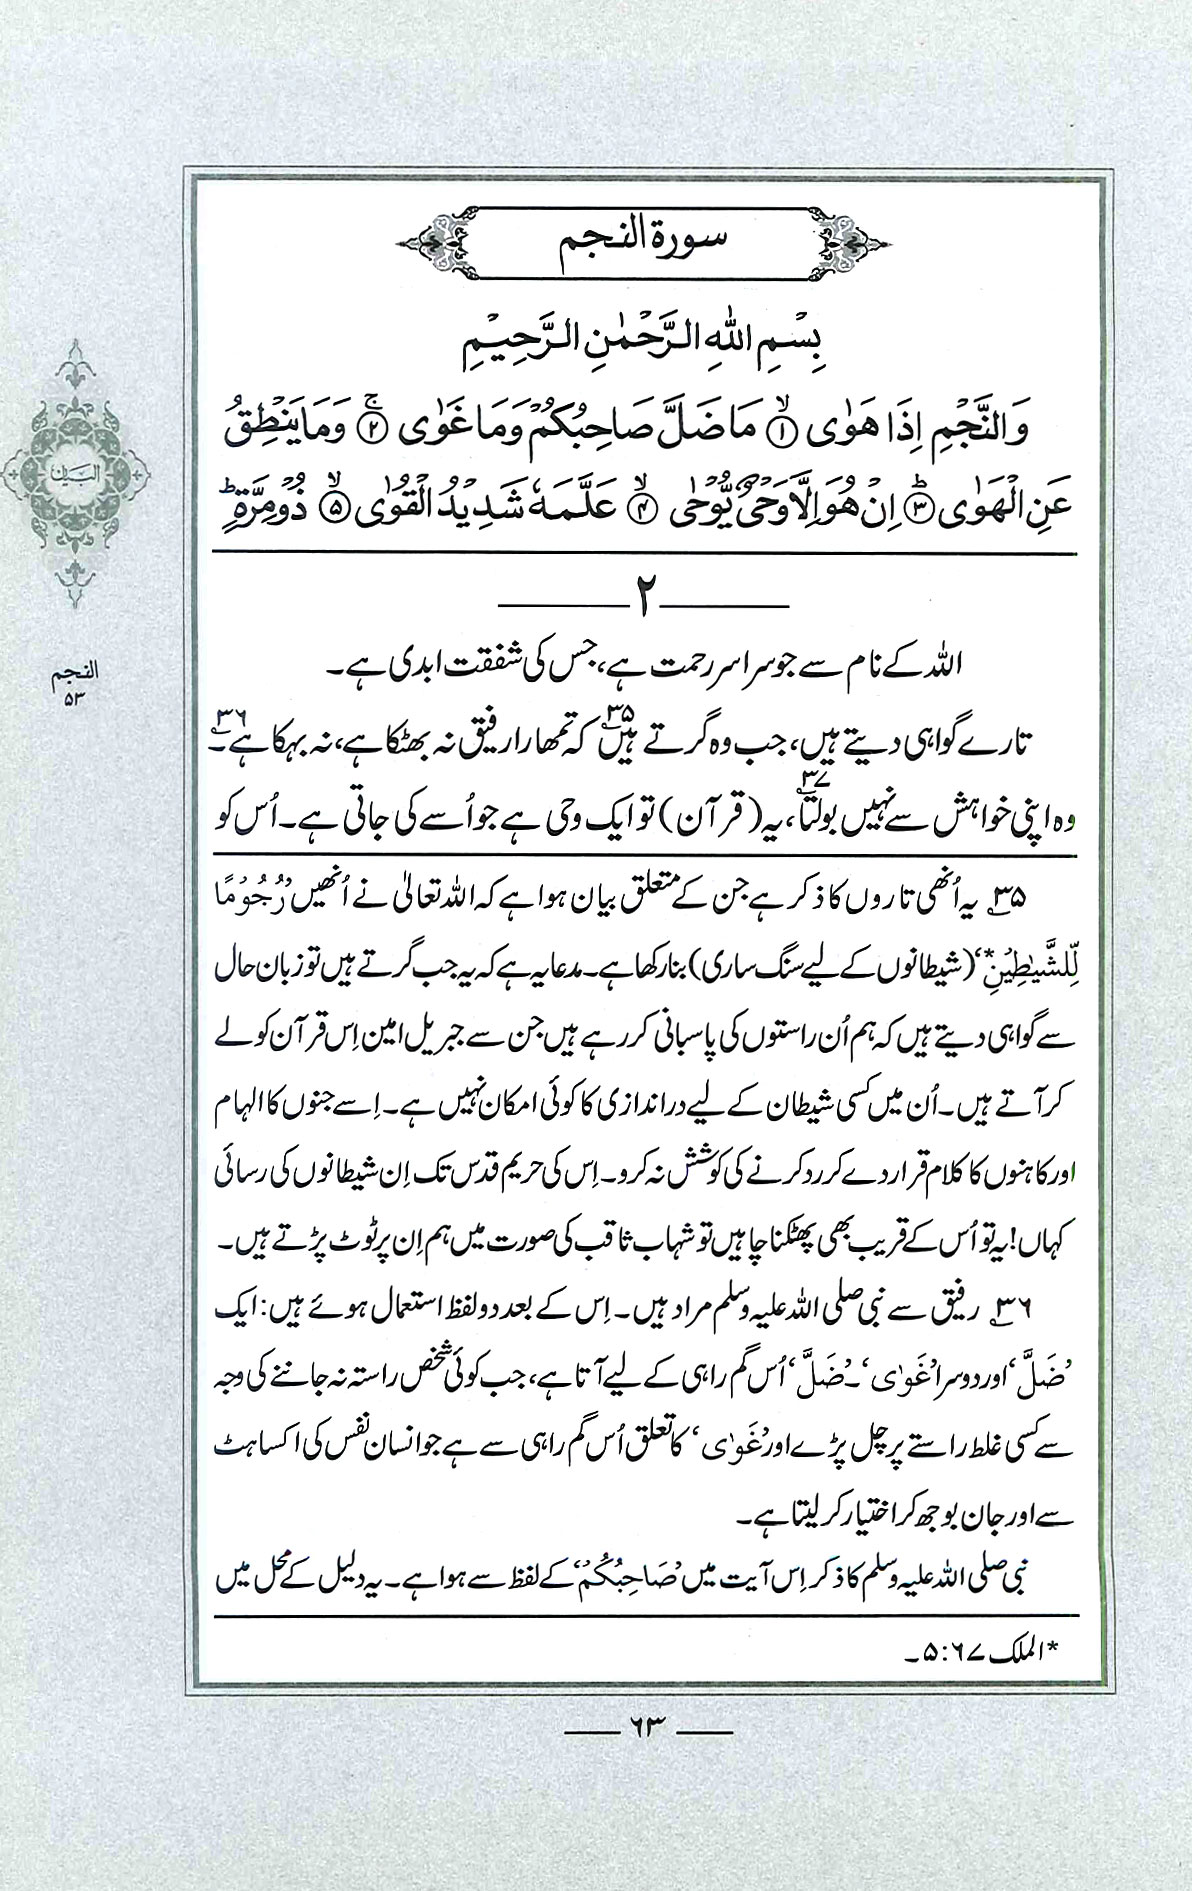 سورة النجم
بِسْمِ اللهِ الرَّحْمٰنِ الرَّحِيْمِ
وَالنَّجْمِ اِذَا هَوٰى ۙ﴿۱﴾ مَا ضَلَّ صَاحِبُكُمْ وَمَا غَوٰى ۚ﴿۲﴾ وَمَا يَنْطِقُ
عَنِ الْهَوٰى ؕ﴿۳﴾ اِنْ هُوَ اِلَّا وَحْىٌ يُّوْحٰى ۙ﴿۴﴾ عَلَّمَهٗ شَدِيْدُ الْقُوٰى ۙ﴿۵﴾ ذُوْ مِرَّةٍ ؕ
۲
اللہ کے نام سے جو سراسر رحمت ہے، جس کی شفقت ابدی ہے۔
تارے گواہی دیتے ہیں، جب وہ گرتے ہیں۳۵ کہ تمھارا رفیق نہ بھٹکا ہے، نہ بہکا ہے۔۳۶
وہ اپنی خواہش سے نہیں بولتا۳۷، یہ (قرآن) تو ایک وحی ہے جو اُسے کی جاتی ہے۔ اُس کو
۳۵؂ یہ اُنھی تاروں کا ذکر ہے جن کے متعلق بیان ہوا ہے کہ اللہ تعالیٰ نے اُنھیں ’رُجُوْمًا
لِّلشَّيٰطِيْنِ*‘ (شیطانوں کے لیے سنگ ساری) بنا رکھا ہے۔ مدعا یہ ہے کہ یہ جب گرتے ہیں تو زبان حال
سے گواہی دیتے ہیں کہ ہم اُن راستوں کی پاسبانی کر رہے ہیں جن سے جبریل امین اِس قرآن کو لے
کر آتے ہیں۔ اُن میں کسی شیطان کے لیے در اندازی کا کوئی امکان نہیں ہے۔ اِسے جنوں کا الہام
اور کاہنوں کا کلام قرار دے کر رد کرنے کی کوشش نہ کرو۔ اِس کی حریم قدس تک اِن شیطانوں کی رسائی
کہاں! یہ تو اُس کے قریب بھی پھٹکنا چاہیں تو شہاب ثاقب کی صورت میں ہم اِن پر ٹوٹ پڑتے ہیں۔
۳۶؂ رفیق سے نبی صلی اللہ علیہ وسلم مراد ہیں۔ اِس کے بعد دو لفظ استعمال ہوئے ہیں: ایک
’ضَلَّ‘ اور دوسرا ’غَوٰی‘۔ ’ضَلَّ‘ اُس گم راہی کے لیے آتا ہے، جب کوئی شخص راستہ نہ جاننے کی وجہ
سے کسی غلط راستے پر چل پڑے اور ’غَوٰی‘ کا تعلق اُس گم راہی سے ہے جو انسان نفس کی اکساہٹ
سے اور جان بوجھ کر اختیار کر لیتا ہے۔
نبی صلی اللہ علیہ وسلم کا ذکر اِس آیت میں ’صَاحِبُكُمْ‘ کے لفظ سے ہوا ہے۔ یہ دلیل کے محل میں
*الملک ۶۷: ۵۔
۶۳
البیان
النجم
۵۳